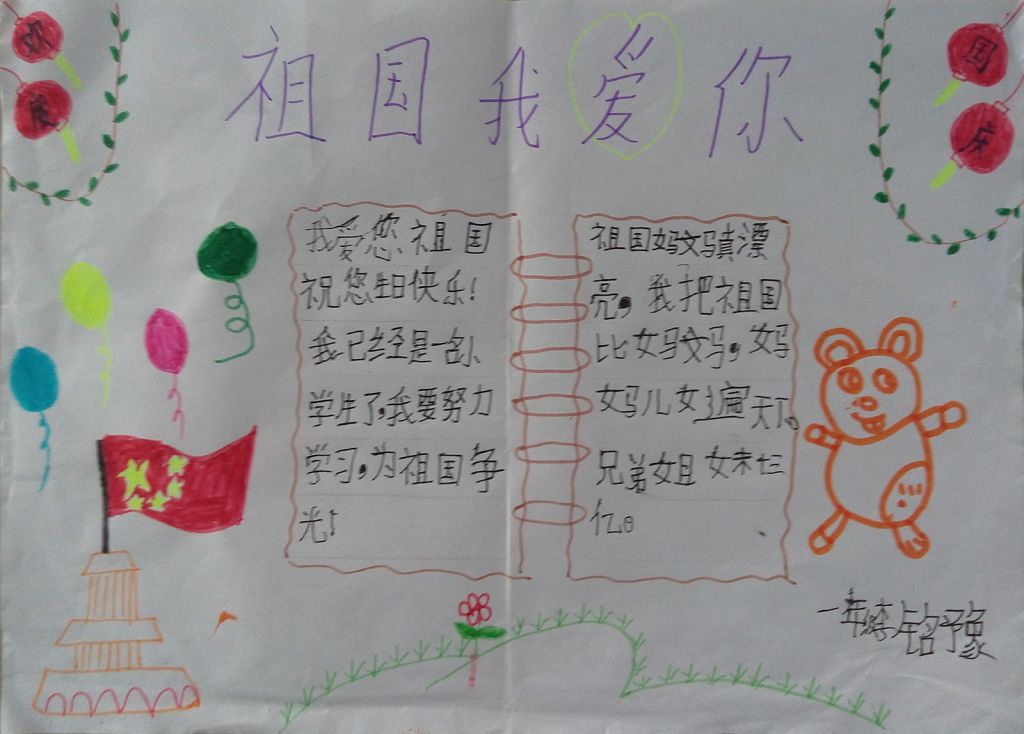 欢
度
国
庆
祖国我爱你
我爱您祖国
祝您生日快乐!
我已经是一名小
学生了,我要努力
学习,为祖国争
光!
祖国妈妈真漂
亮,我把祖国
比妈妈,妈
妈儿女遍天下。
兄弟姐妹十三
亿。
一年级 铭予豫